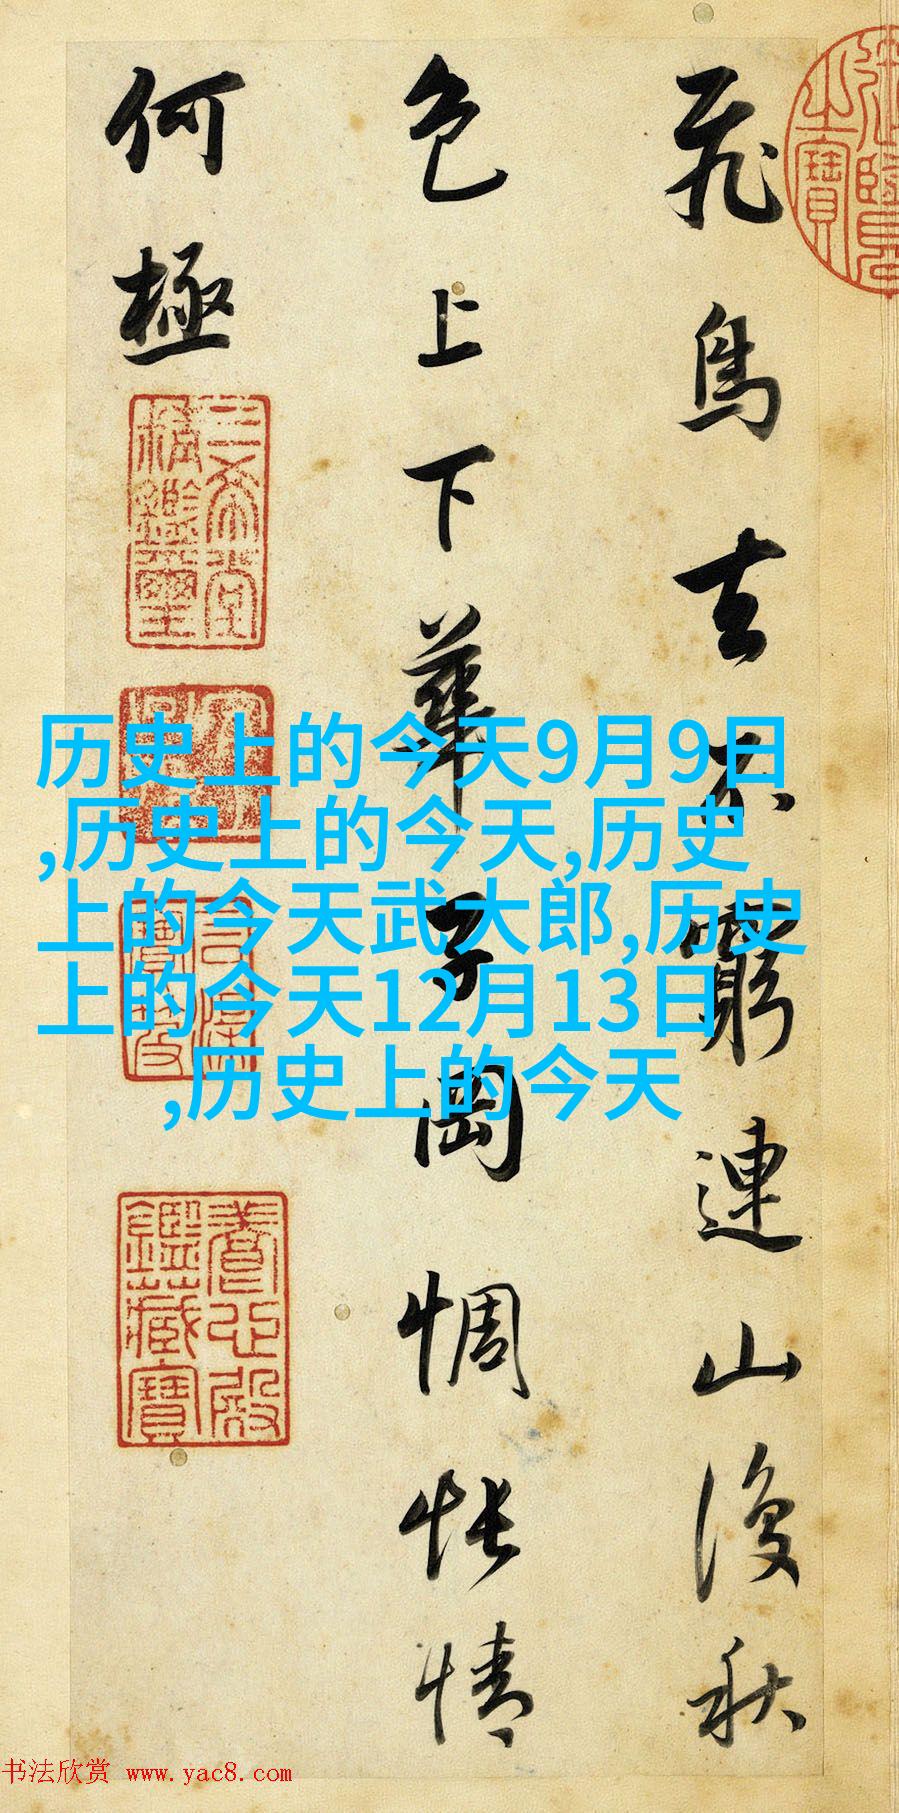 飛鳥去不窮連山復秋
色上下華子岡惆悵情
何極
三希堂
精鑑璽
宜子孫
石渠
寶笈
養心殿
鑑藏寶
历史上的今天9月9日
,历史上的今天,历史
上的今天武大郎,历史
上的今天12月13日
,历史上的今天
书法欣赏 www.yac8.com